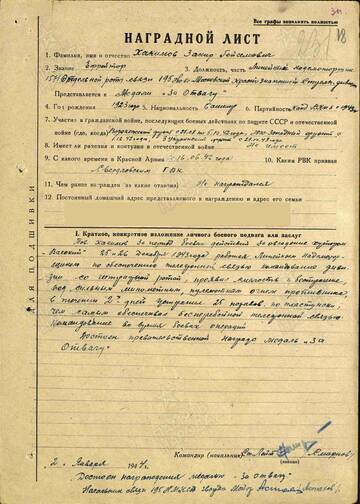 Все графы заполнять полностью
НАГРАДНОЙ ЛИСТ
1. Фамилия, имя и отчество Хакимов Закир
2. Звание Ефрейтор 3. Должность, часть Линейный надсмотрщик
Отдельной роты связи 195
Представляется к Медали "За Отвагу"
4. Год рождения 1923 года 5. Национальность Башкир 6. Партийность
7. Участие в гражданской войне, последующих боевых действиях по защите СССР и отечественной
войне (где, когда)
8. Имеет ли ранения и контузии в отечественной войне Не имеет
9. С какого времени в Красной Армии с 16.06.42 года 10. Каким РВК призван
Свердловским ГВК
11. Чем ранее награжден (за какие отличия) Не награждался
12. Постоянный домашний адрес представляемого к награждению и адрес его семьи
ДЛЯ ПОДШИВКИ
I. Краткое, конкретное изложение личного боевого подвига или заслуг
Тов Хакимов за период боевых действий за овладение хутором
25-26 декабря 1943 года работая Линейным надсмотр-
щиком по обеспечению телефонной связью командования диви-
зии со штрафной ротой, проявил смелость и бесстрашие
под сильным минометным пулеметным огнем противника,
в течении 2х дней устранил 25 порывов, по
чем самым обеспечивал бесперебойной телефонной связью
Командование во время боевых операций
Достоен правительственной награды медаль "За
Отвагу"
Командир (начальник)
2 Января 1944 г.
Достоен награждения медалью "За отвагу"
Начальник связи 195 майор